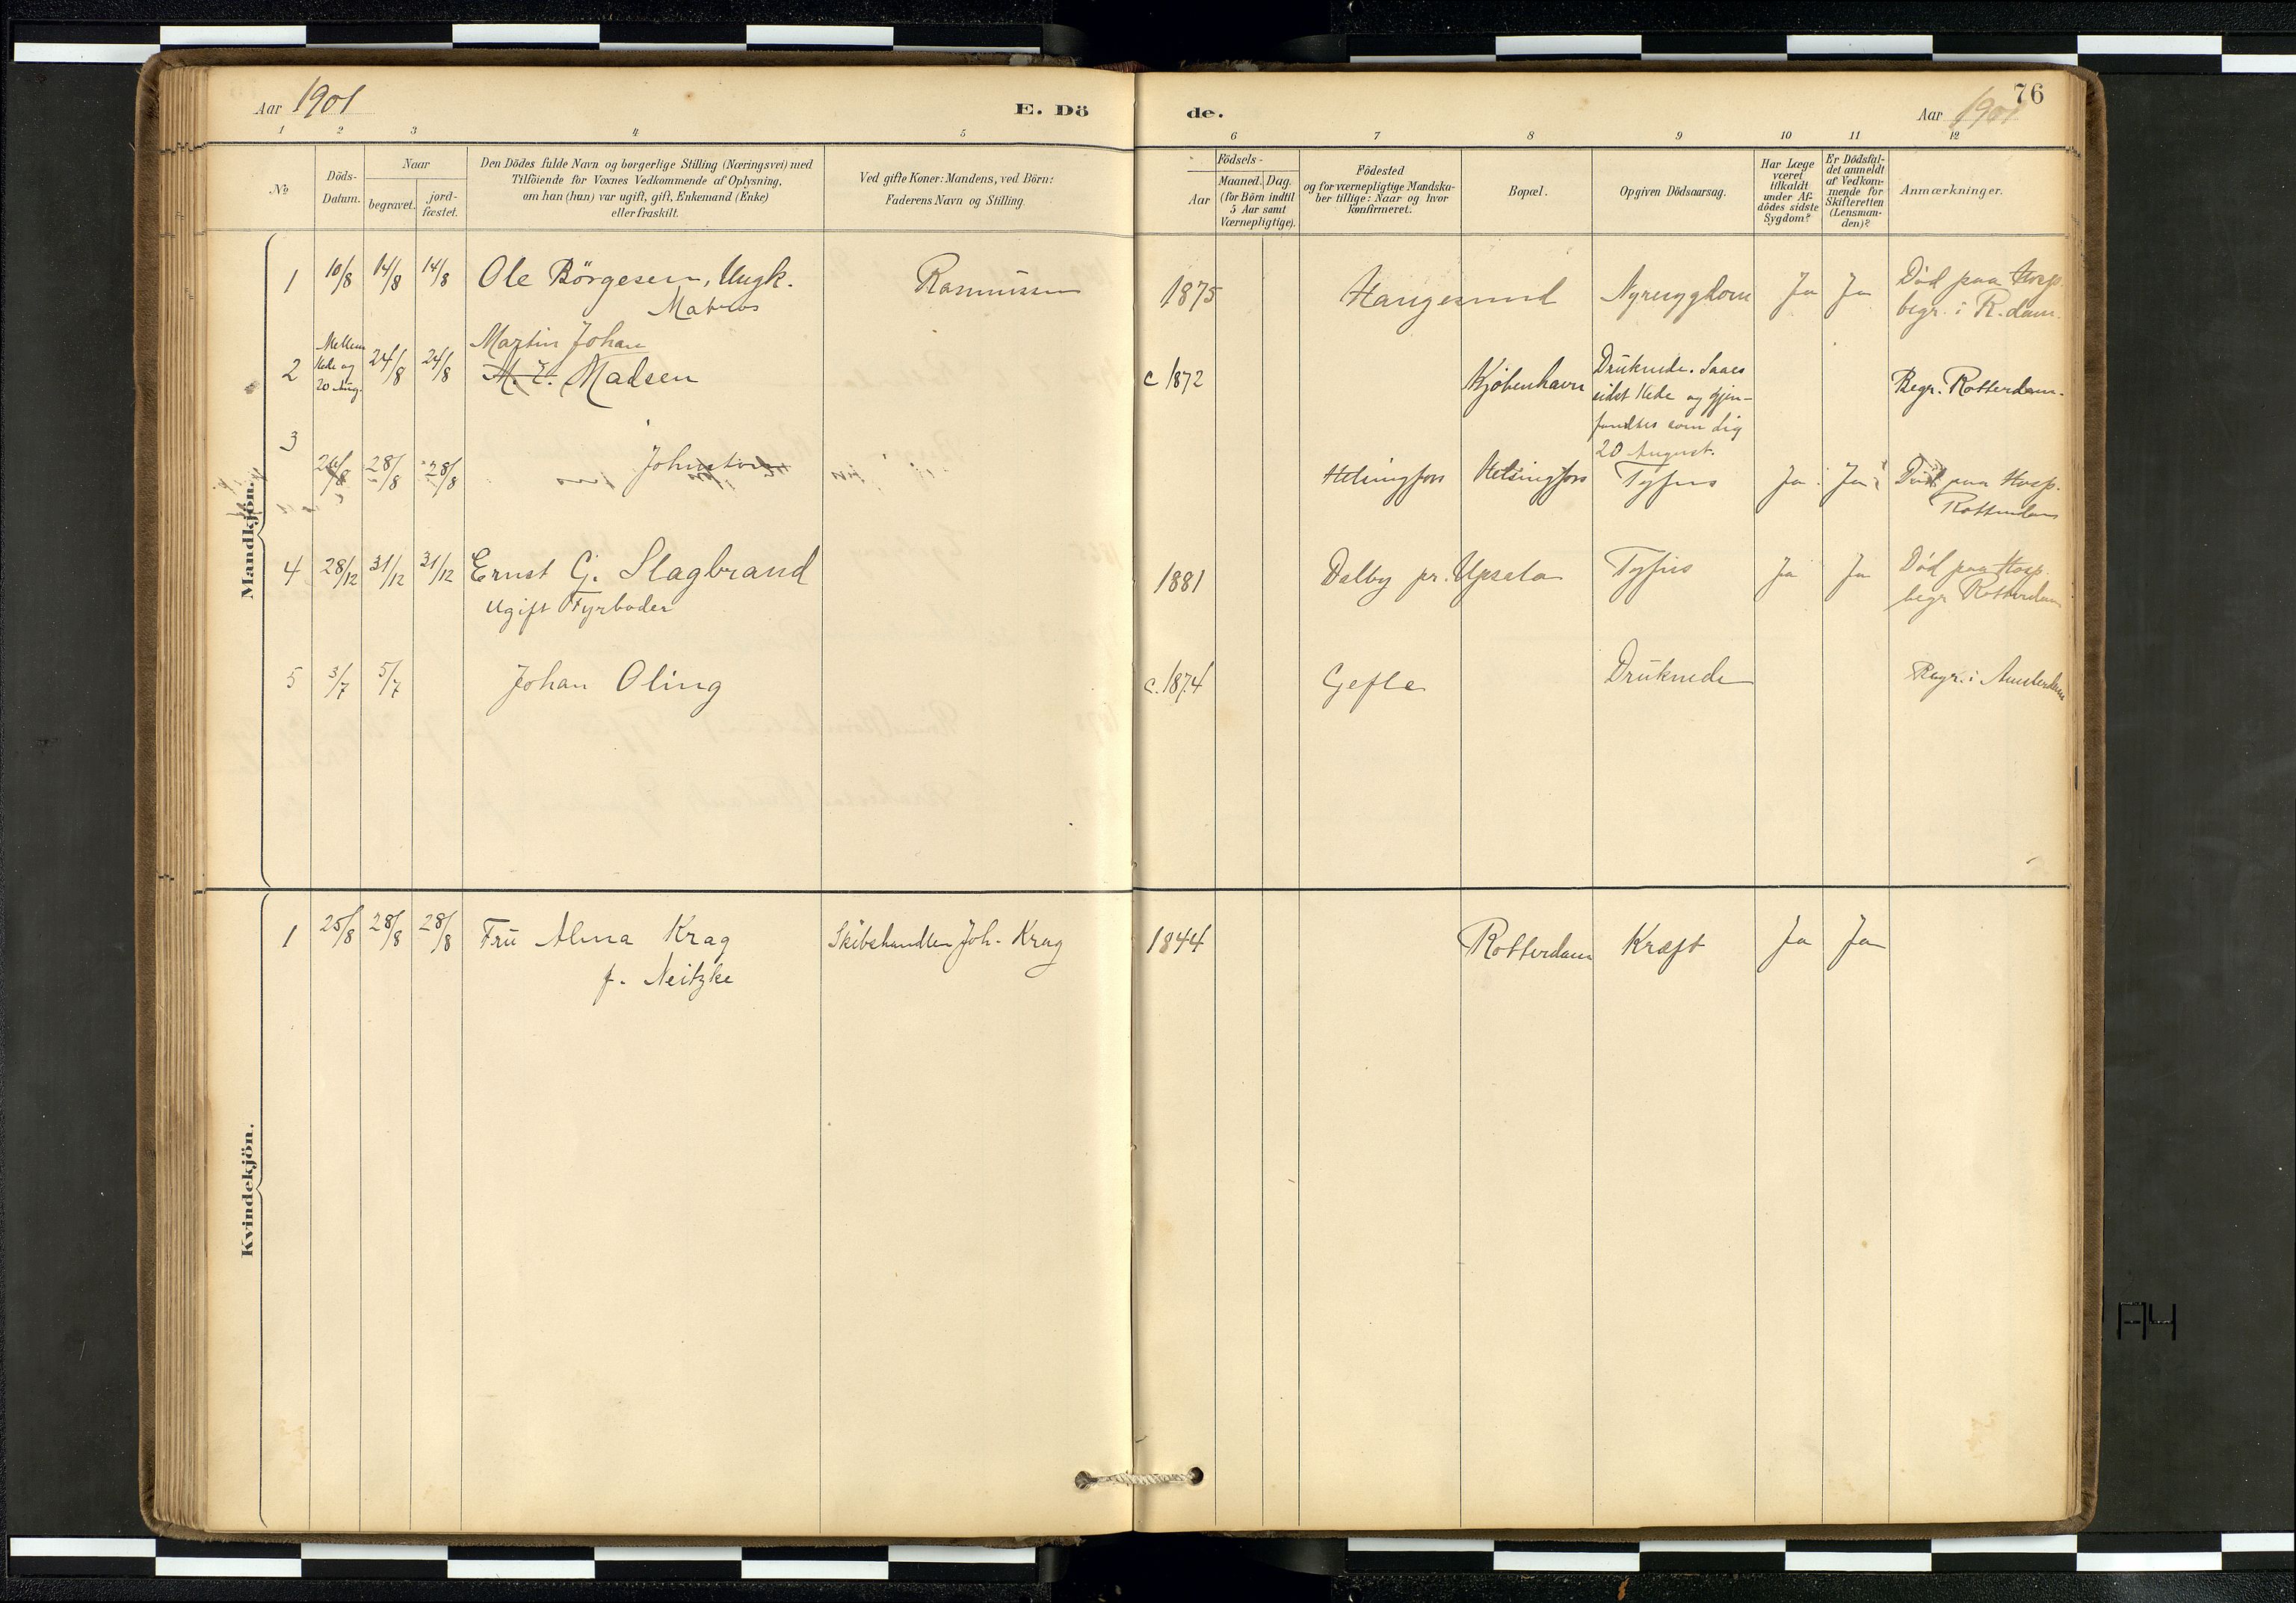 Aar 1901
E. Dö
de.
76
Aar 1901
1 2 3 4 5 6 7 8 9 10 11 12
No
Döds-
Datum.
Naar
begravet.
jord-
fæstet.
Den Dödes fulde Navn og borgerlige Stilling (Næringsvei) med
Tilföiende for Voxnes Vedkommende af Oplysning,
om han (hun) var ugift, gift, Enkemand (Enke)
eller fraskilt.
Ved gifte Koner: Mandens, ved Börn:
Faderens Navn og Stilling.
Födsels-
Aar
Maaned. Dag.
(for Börn indtil
5 Aar samt
Værnepligtige).
Födested
og for værnepligtige Mandska-
ber tillige: Naar og hvor
konfirmeret.
Bopæl.
Opgiven Dödsaarsag.
Har Læge
været
tilkaldt
under Af-
dödes sidste
Sygdom?
Er Dödsfal-
det anmeldt
af Vedkom-
mende for
Skifteretten
(Lensman-
den)?
Anmærkninger.
Mandkjön.
1 10/8 14/8 14/8 Ole Börgesen, Ungk. Rasmussen 1875 Haugesund Nyresygdom Ja Ja Död paa Hosp.
Matros begr. i R.dam.
Martin Johan
2 Mellem 24/8 24/8 M. E. Madsen c 1872 Kjöbenhavn Druknede. Saaes Begr. Rotterdam.
20 Aug. sidst og gjen-
fundtes som Lig
20 August.
3 28/8 28/8 Helsingfors Helsingfors Tyfus Ja Ja Död paa Hosp.
Rotterdam
4 28/12 31/12 31/12 Ernst G. Slagbrand 1881 Dalby pr. Upsala Tyfus Ja Ja Död paa Hosp.
Ugift Fyrböder begr Rotterdam
5 3/7 5/7 Johan Oling c. 1874 Gefle Druknede Begr. i Amsterdam
Kvindekjön.
1 25/8 28/8 28/8 Fru Alma Krag Skibshandler Joh. Krag 1844 Rotterdam Kræft Ja Ja
f. Neitzke